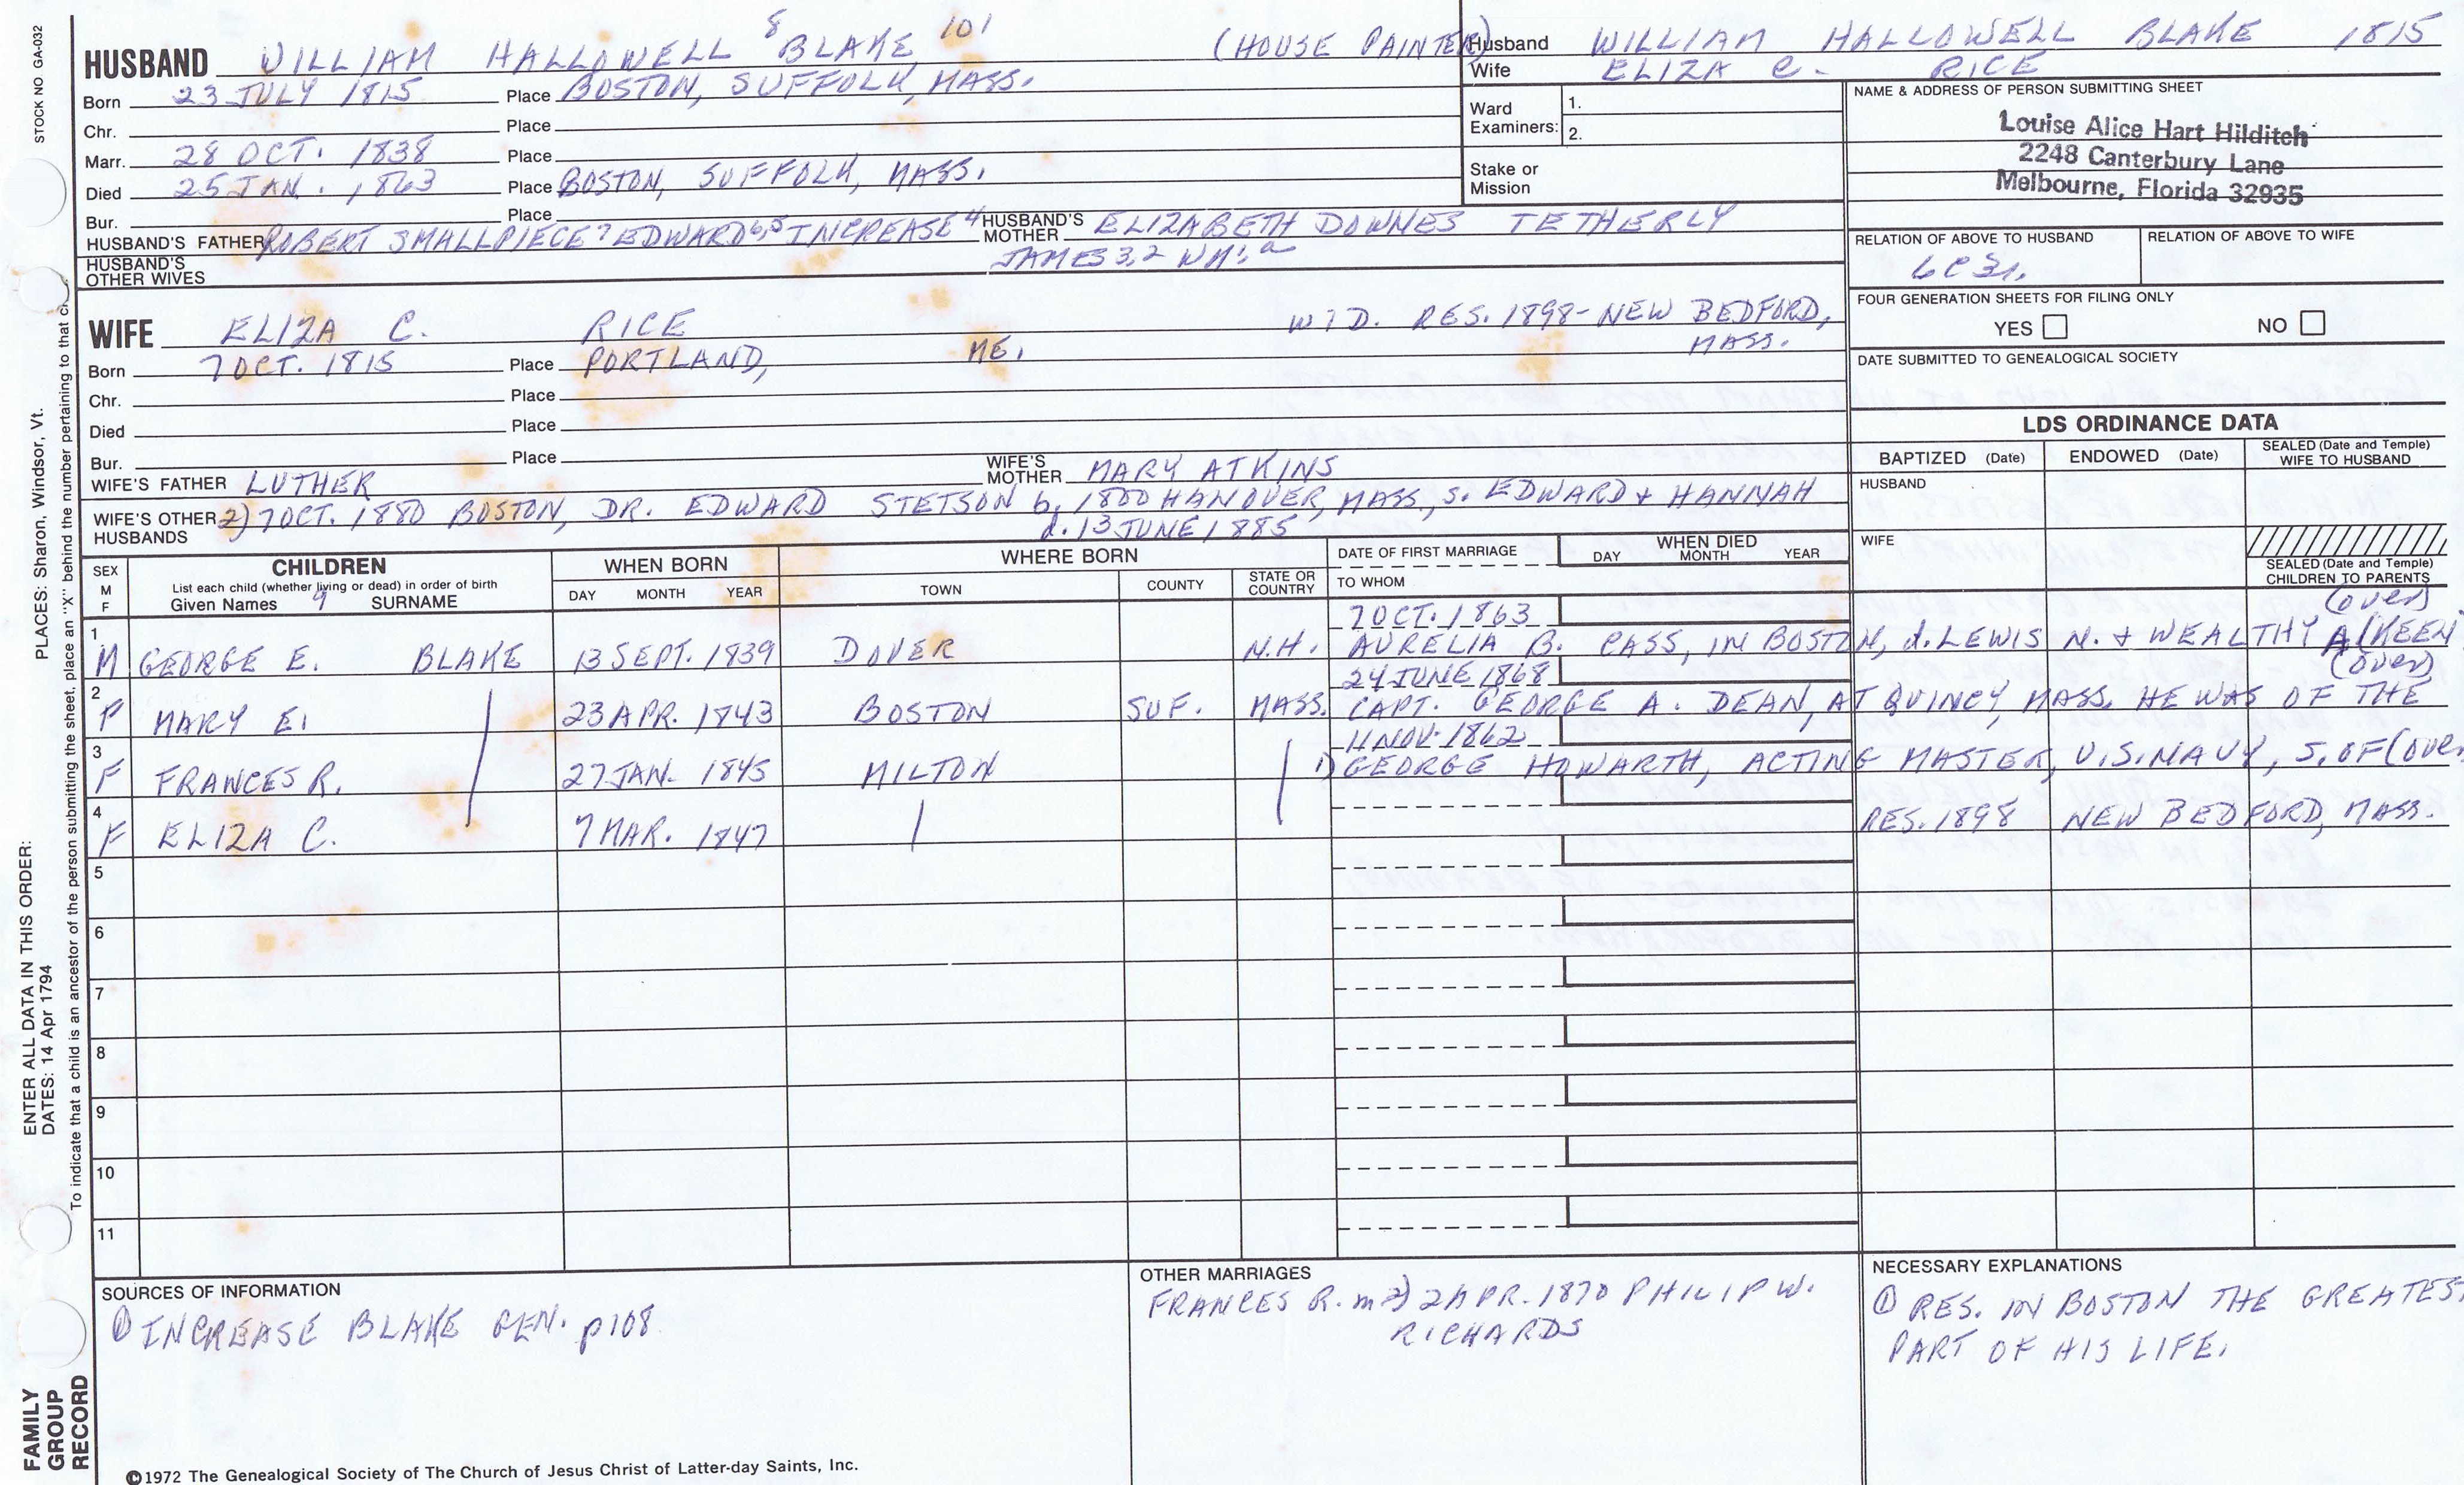 STOCK NO GA-032
HUSBAND WILLIAM HALLOWELL 8 BLAKE 101 (HOUSE PAINTER)
Born 23 JULY 1815 Place BOSTON, SUFFOLK, MASS.
Chr. Place
Marr. 28 OCT. 1838 Place
Died 25 JAN. 1863 Place BOSTON, SUFFOLK, MASS.
Bur. Place
HUSBAND'S FATHER ROBERT SMALLPIECE 7 EDWARD 6,5 INCREASE 4 HUSBAND'S MOTHER ELIZABETH DOWNES TETHERLY
HUSBAND'S OTHER WIVES JAMES 3,2 WM. a
Husband WILLIAM HALLOWELL BLAKE 1815
Wife ELIZA C. RICE
Ward Examiners: 1.
2.
Stake or Mission
NAME & ADDRESS OF PERSON SUBMITTING SHEET
Louise Alice Hart Hilditch
2248 Canterbury Lane
Melbourne, Florida 32935
RELATION OF ABOVE TO HUSBAND RELATION OF ABOVE TO WIFE
6C3r.
FOUR GENERATION SHEETS FOR FILING ONLY
YES NO
DATE SUBMITTED TO GENEALOGICAL SOCIETY
WIFE ELIZA C. RICE WID. RES. 1898- NEW BEDFORD,
MASS.
Born 7 OCT. 1815 Place PORTLAND, ME.
Chr. Place
Died Place
Bur. Place
WIFE'S FATHER LUTHER WIFE'S MOTHER MARY ATKINS
WIFE'S OTHER HUSBANDS 2) 7 OCT. 1880 BOSTON, DR. EDWARD STETSON b. 1800 HANOVER, MASS., S. EDWARD & HANNAH
d. 13 JUNE 1885
LDS ORDINANCE DATA
BAPTIZED (Date) ENDOWED (Date) SEALED (Date and Temple) WIFE TO HUSBAND
HUSBAND
WIFE
SEALED (Date and Temple) CHILDREN TO PARENTS
SEX M F CHILDREN WHEN BORN WHERE BORN DATE OF FIRST MARRIAGE WHEN DIED
List each child (whether living or dead) in order of birth
Given Names 9 SURNAME DAY MONTH YEAR TOWN COUNTY STATE OR COUNTRY TO WHOM DAY MONTH YEAR
7 OCT. 1863 (over)
1 M GEORGE E. BLAKE 13 SEPT. 1839 DOVER N.H. AURELIA B. CASS, IN BOSTON, d. LEWIS N. & WEALTHY A (KEEN)
24 JUNE 1868 (over)
2 F MARY E. 23 APR. 1843 BOSTON SUF. MASS. CAPT. GEORGE A. DEAN, AT QUINCY, MASS. HE WAS OF THE
11 NOV. 1862
3 F FRANCES R. 27 JAN. 1845 MILTON 1) GEORGE HOWARTH, ACTING MASTER, U.S. NAVY, S. OF (over
4 F ELIZA C. 7 MAR. 1847 RES. 1898 NEW BEDFORD, MASS.
5
6
7
8
9
10
11
SOURCES OF INFORMATION
① INCREASE BLAKE GEN. p108
OTHER MARRIAGES
FRANCES R. m 2) 2 APR. 1870 PHILIP W.
RICHARDS
NECESSARY EXPLANATIONS
① RES. IN BOSTON THE GREATEST
PART OF HIS LIFE.
ENTER ALL DATA IN THIS ORDER:
DATES: 14 Apr 1794
PLACES: Sharon, Windsor, Vt.
To indicate that a child is an ancestor of the person submitting the sheet, place an "X" behind the number pertaining to that
FAMILY GROUP RECORD
©1972 The Genealogical Society of The Church of Jesus Christ of Latter-day Saints, Inc.